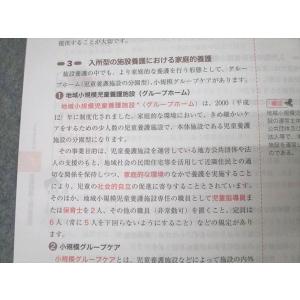 提供することが大切です。
3 入所型の施設養護における家庭的養護
施設養護の中でも、より家庭的な養護を行う形態として、グループホーム（児童養護施設の分園型）、小規模グループケアがあります。
❶ 地域小規模児童養護施設（グループホーム）
地域小規模児童養護施設（グループホーム）は、2000（平成
12）年に制度化されました。家庭的な環境において、きめ細かいケアをするための少人数の児童養護施設で、本体施設である児童養護
施設の分園型になります。
その事業目的は、児童養護施設を運営している地方公共団体や法
人の支援のもと、地域社会の民間住宅等を活用して近隣住民との適
切な関係を保持しつつ、家庭的な環境のなかで養護を実施すること
により、児童の社会的自立の促進に寄与することとされています。
そのほか、地域小規模児童養護施設専任の職員として児童指導員
または保育士を2人、その他の職員（非常勤可）を置くこと、定員は
6人（常に5人を下回らないようにすること）などの規定があり
ます。
❷ 小規模グループケア
小規模グループケアとは、児童養護施設などによって施設の内外
補足
地域小規
施設の運